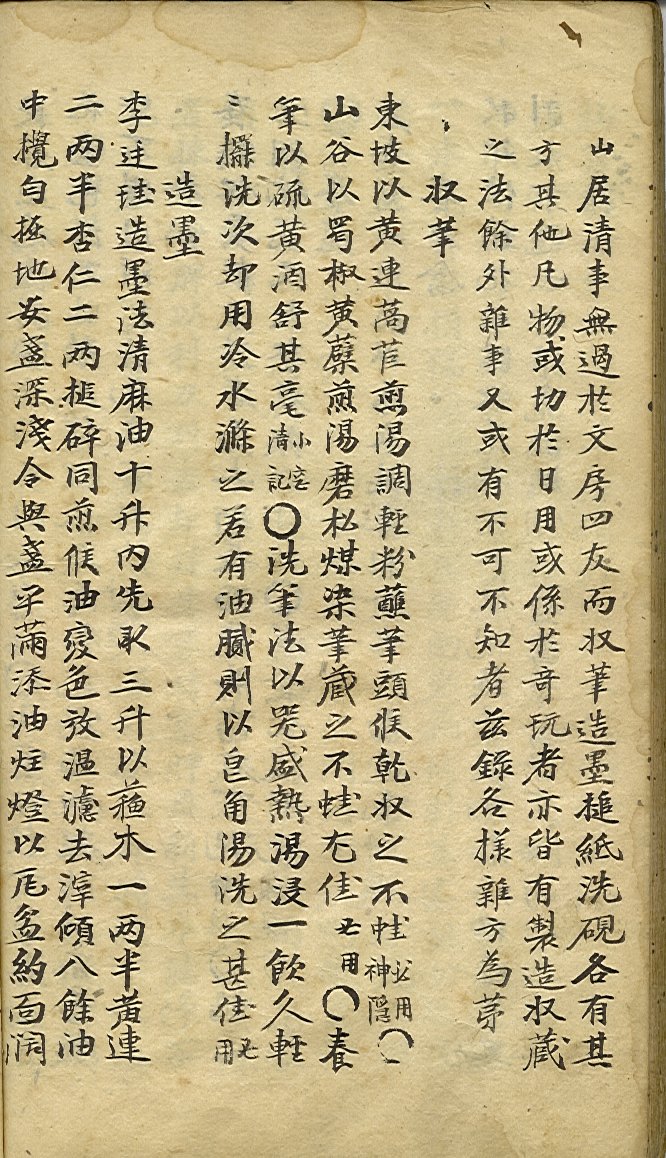 山居清事無過於文房四友而収筆造墨搥紙洗硯各有其
方其他凡物或切於日用或係於奇玩者亦皆有製造収藏
之法餘外雜事又或有不可不知者玆錄各樣雜方爲第
収筆
東坡以黃連萵苣煎湯調輕粉蘸筆頭候乾収之不蛀必用神隱〇
山谷以蜀椒黃蘗煎湯磨松煤染筆藏之不蛀尤佳必用〇春
筆以硫黃酒舒其毫小窓清記〇洗筆法以器盛熱湯浸一飮久輕
〻擺洗次却用冷水滌之若有油膩則以皂角湯洗之甚佳必用
造墨
李廷珪造墨法淸麻油十升內先取三升以蘓木一兩半黃連
二兩半杏仁二兩搥碎同煎候油變色放溫濾去滓傾八餘油
中攪勻掘地安盞深淺令與盞平滿添油炷燈以瓦盆約面濶